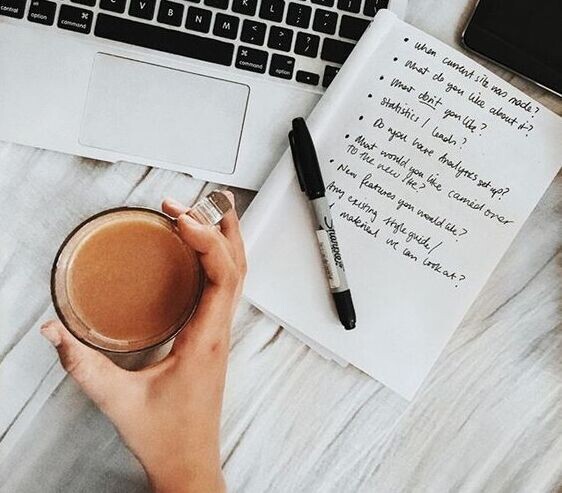 control
option
command
Z
X
C
V
B
N
M
command
option
• When current site was made?
• What do you like about it?
• What don't you like?
• Statistics / leads?
• Do you have Analytics set up?
• What would you like carried over
to the new site?
• New features you would like?
Any existing style guide /
material we can look at?
Sharpie